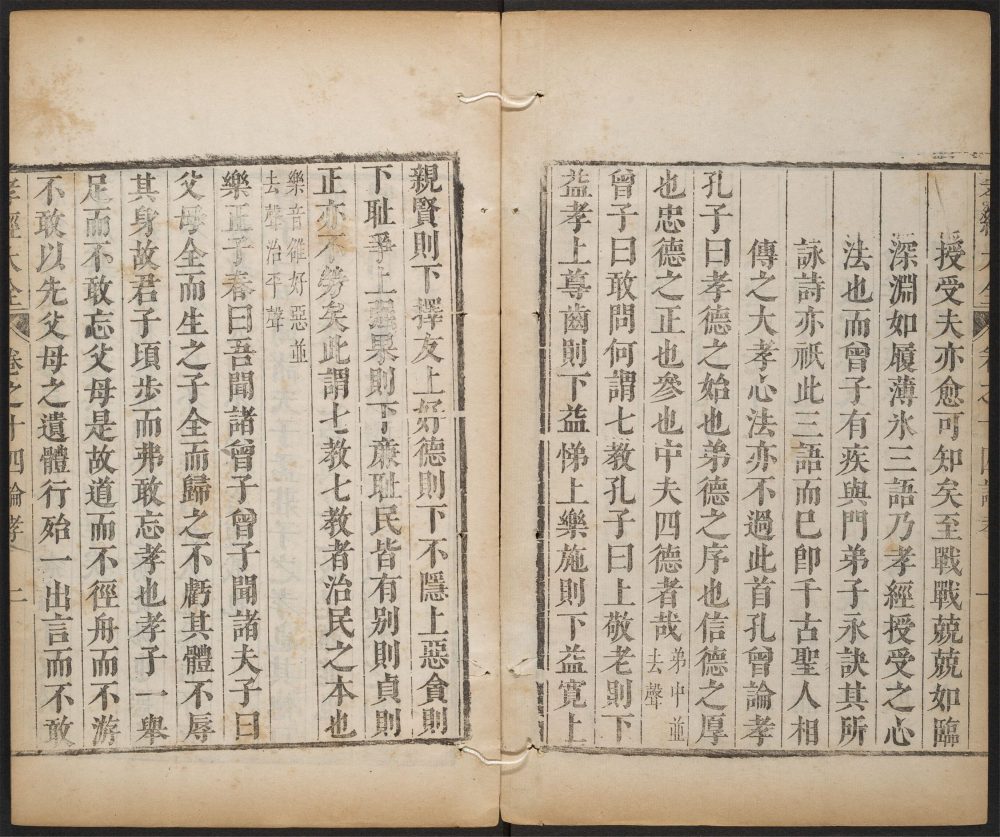 授受夫亦愈可知矣至戰戰兢兢如臨
深淵如履薄氷三語乃孝經授受之心
法也而曾子有疾與門弟子永訣其所
詠詩亦祇此三語而已卽千古聖人相
傳之大孝心法亦不過此首孔曾論孝
孔子曰孝德之始也弟德之序也信德之厚
也忠德之正也參也中夫四德者哉弟中並去聲
曾子曰敢問何謂七教孔子曰上敬老則下
益孝上尊齒則下益悌上樂施則下益寬上
親賢則下擇友上好德則下不隱上惡貪則
下耻爭上强果則下廉耻民皆有别則貞則
正亦不勞矣此謂七教七教者治民之本也
樂音雒好惡並去聲治平聲
樂正子春曰吾聞諸曾子曾子聞諸夫子曰
父母全而生之子全而歸之不虧其體不辱
其身故君子頃步而弗敢忘孝也孝子一舉
足而不敢忘父母是故道而不徑舟而不游
不敢以先父母之遺體行殆一出言而不敢
孝經大全 卷之十四論孝 二